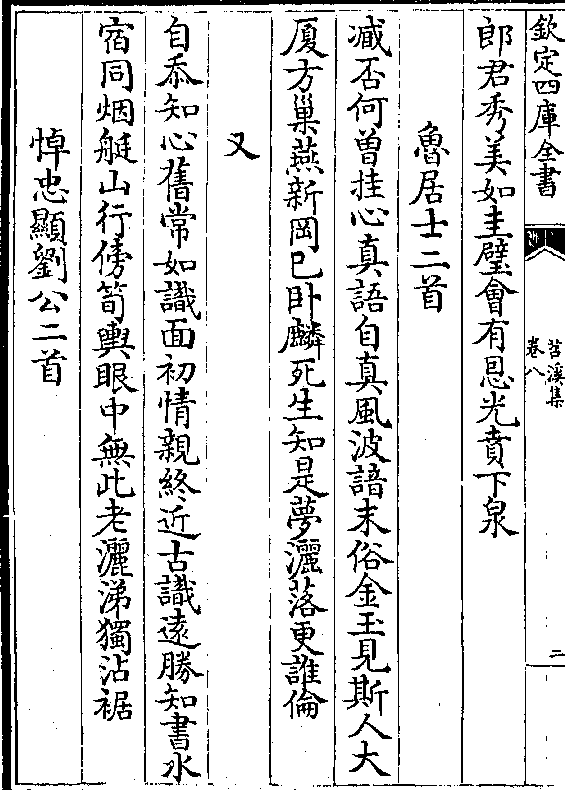 欽定四庫全書
苕溪集
卷八
二
郎君秀美如圭璧會有恩光賁下泉
魯居士二首
臧否何曽挂心真語自真風波語末俗金玉見斯人大
厦方巢燕新岡已卧麟死生知是夢灑落更誰倫
又
自忝知心舊常如識面初情親終近古識遠勝知書水
宿同烟艇山行傍筍輿眼中無此老灑涕獨沾裾
悼忠顯劉公二首